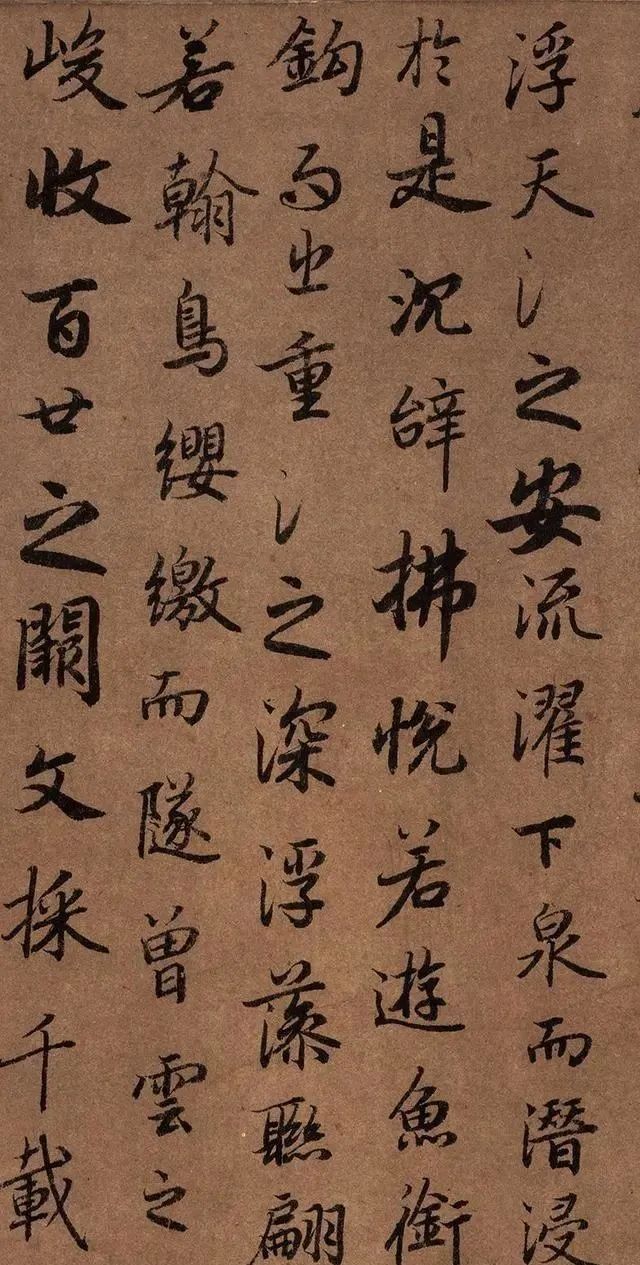 浮天氵之安流濯下泉而潛浸
於是沉辝拂悅若遊魚銜
鈎而出重氵之深浮藻聯翩
若翰鳥纓繳而隧曾雲之
峻收百廿之闕文採千載